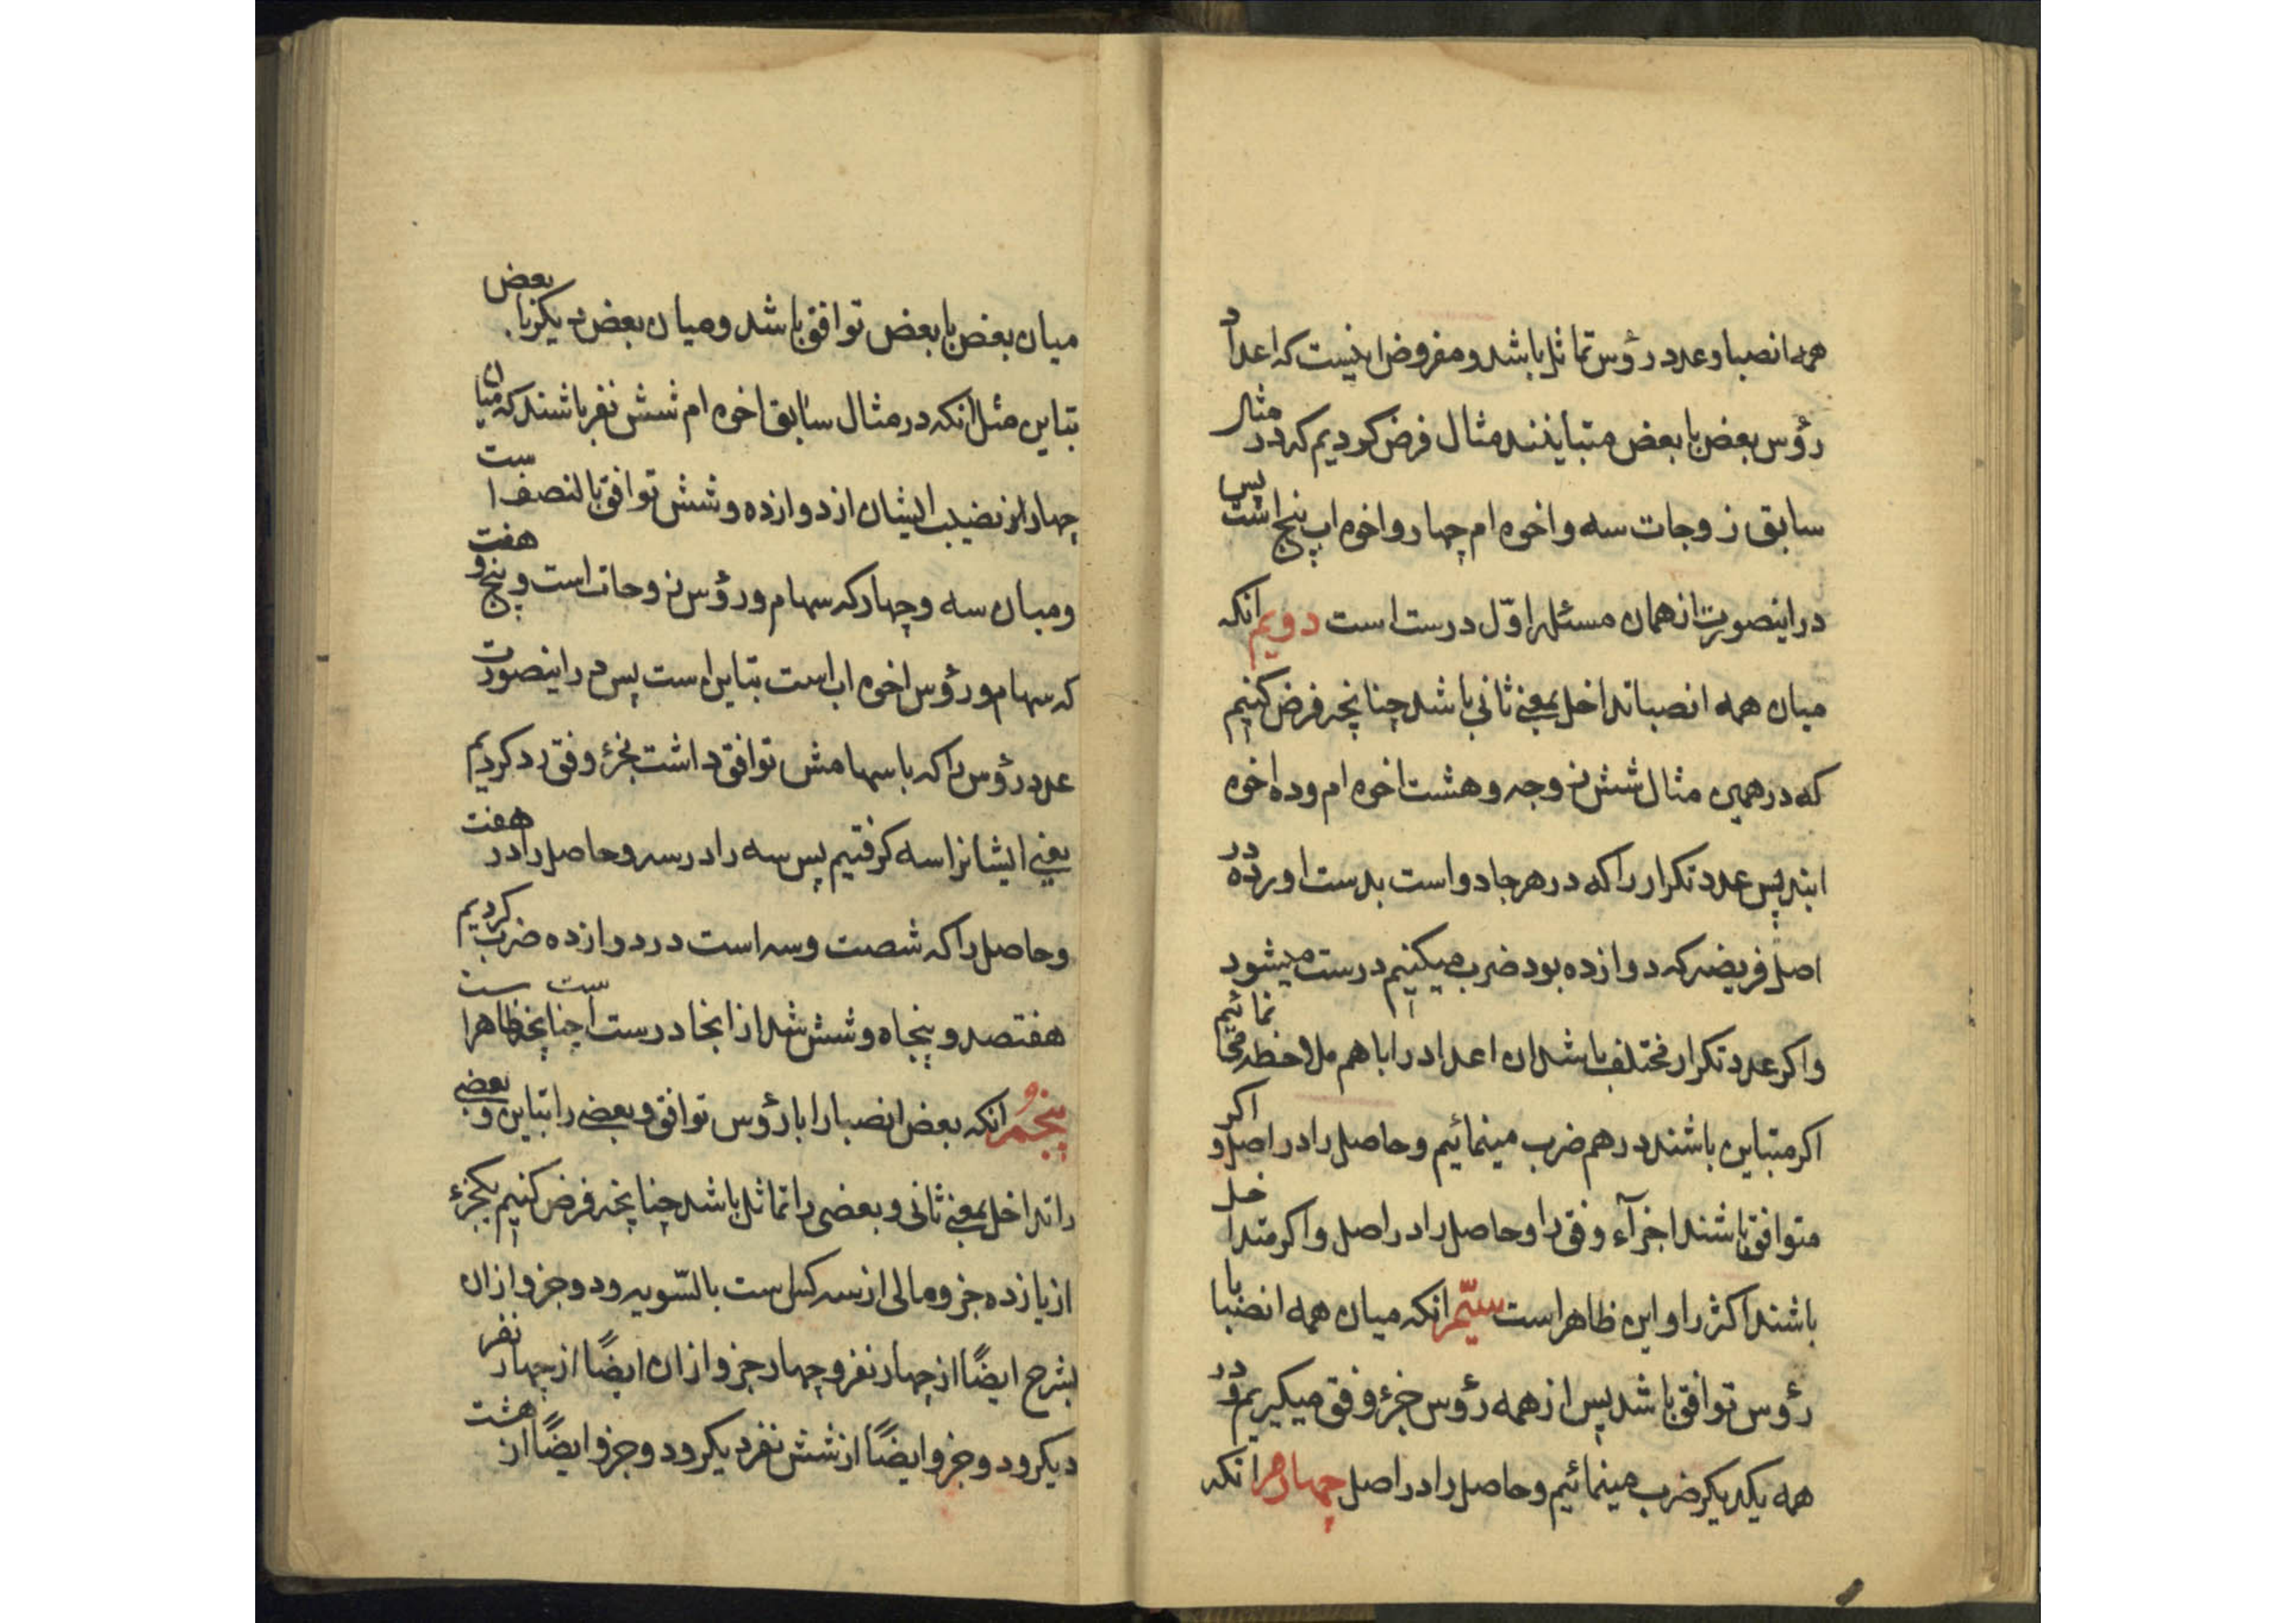 همه انصبا و عدد رؤس تماثل باشد و مفروض اینست که اعداد
رؤس بعض با بعض متباینند مثال فرض کردیم که در مثال
سابق زوجات سه و اخوه ام چهار و اخوه اب پنج است پس
در اینصورت از همان مسئله اوّل درست است دویم انکه
میان همه انصبا تداخل بمعنی ثانی باشد چنانچه فرض کنیم
که در همین مثال شش زوجه و هشت اخوه ام و ده اخوه
ابند پس عدد تکرار را که در هر جا دو است بدست اورده در
اصل فریضه که دوازده بود ضرب میکنیم درست میشود
و اکر عدد تکرار مختلف باشد ان اعداد را با هم ملاحظه نمائیم
اکر متباین باشند در هم ضرب مینمائیم و حاصل را در اصل و اکر
متوافق باشند اجزآء وفق را و حاصل را در اصل و اکر متداخل
باشند اکثر را و این ظاهر است سیّم انکه میان همه انصبا با
رؤس توافق باشد پس از همه رؤس جزء وفق میکیریم و در
همه یکدیکر ضرب مینمائیم و حاصل را در اصل چهارم انکه
میان بعض با بعض توافق باشد و میان بعض دیکر با بعض
تباین مثل انکه در مثال سابق اخوه ام شش نفر باشند که میان
چهار از نصیب ایشان از دوازده و شش توافق بالنصف است
و میان سه و چهار که سهام و رؤس زوجات است و پنج و هفت
که سهام و رؤس اخوه اب است تباین است پس در اینصورت
عدد رؤس را که با سهامش توافق داشت بجزء وفق رد کردیم
یعنی ایشانرا سه کرفتیم پس سه را در سه و حاصل را در هفت
و حاصل را که شصت و سه است در دوازده ضرب کردیم
هفتصد و پنجاه و شش شد از انجا درست است چنانچه ظاهر است
پنجم انکه بعض انصبا را با رؤس توافق و بعضی را تباین و بعضی
را تداخل بمعنی ثانی و بعضی را تماثل باشد چنانچه فرض کنیم یکجزء
از یازده جزو مالی از سه کس است بالسّویه و دو جزو از ان
بشرح ایضًا از چهار نفر و چهار جزو از ان ایضًا از چهار نفر
دیکر و دو جزو ایضًا از شش نفر دیکر و دو جزو ایضًا از هشت